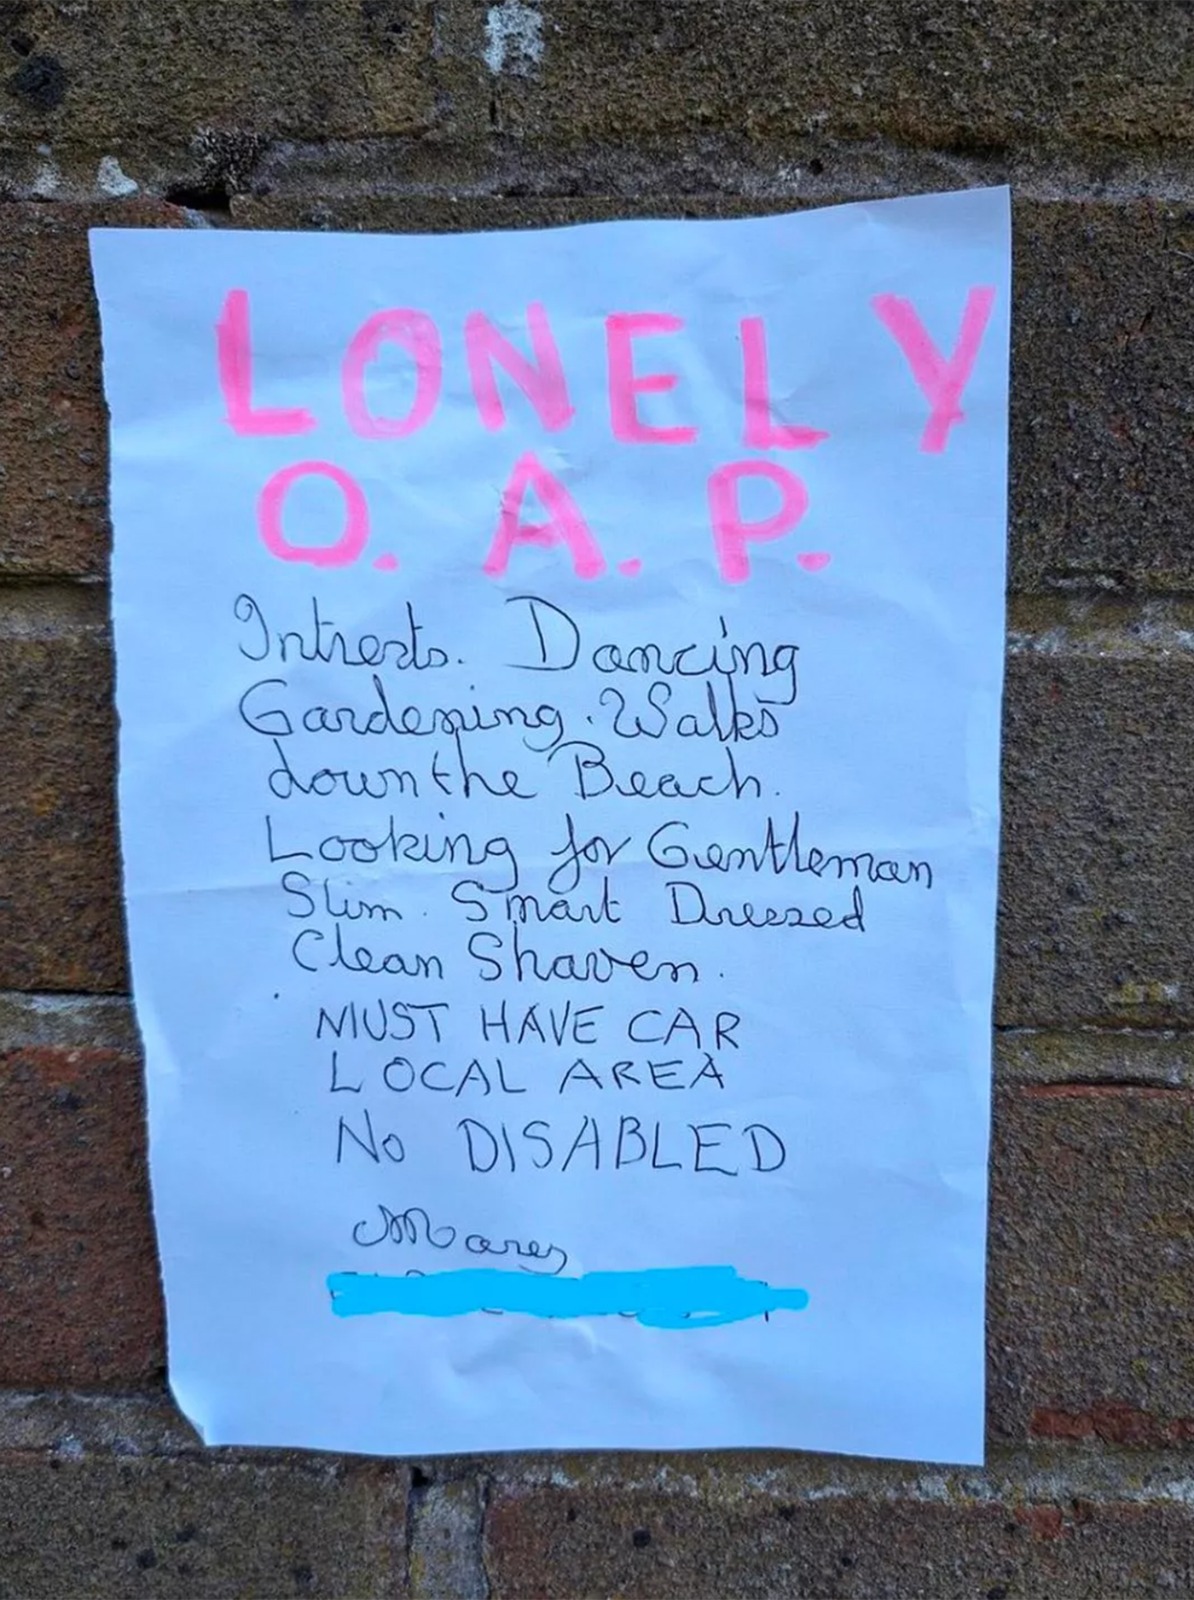 LONELY
O. A. P.
Intrests. Dancing
Gardening. Walks
down the Beach.
Looking for Gentleman
Slim. Smart Dressed
Clean Shaven.
MUST HAVE CAR
LOCAL AREA
No DISABLED